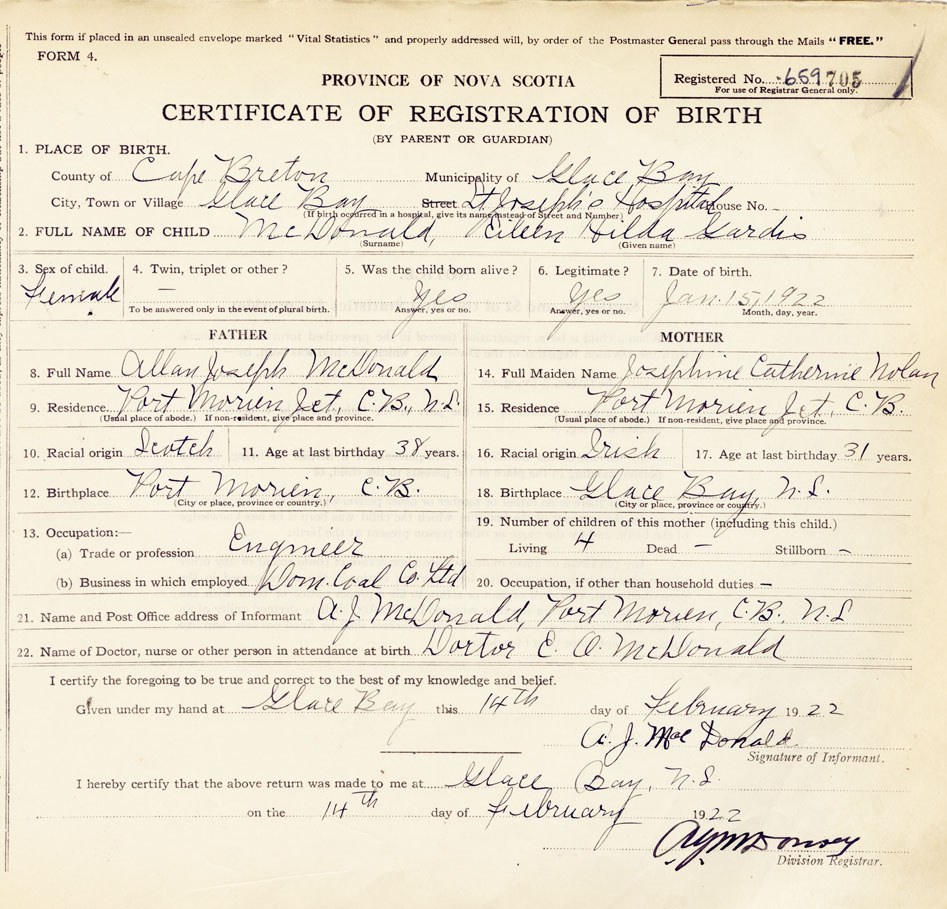 This form if placed in an unsealed envelope marked "Vital Statistics" and properly addressed will, by order of the Postmaster General pass through the Mails "FREE."
FORM 4.
PROVINCE OF NOVA SCOTIA
Registered No. 659705
For use of Registrar General only.
CERTIFICATE OF REGISTRATION OF BIRTH
(BY PARENT OR GUARDIAN)
1. PLACE OF BIRTH.
County of Cape Breton Municipality of Glace Bay
City, Town or Village Glace Bay Street St Joseph's Hospital House No. -
(If birth occurred in a hospital, give its name instead of Street and Number)
2. FULL NAME OF CHILD McDonald, Eileen Hilda Gardis
(Surname) (Given name)
3. Sex of child. 4. Twin, triplet or other? 5. Was the child born alive? 6. Legitimate? 7. Date of birth.
Female — Yes Yes Jan. 15, 1922
To be answered only in the event of plural birth. Answer, yes or no. Answer, yes or no. Month, day, year.
FATHER MOTHER
8. Full Name Allan Joseph McDonald 14. Full Maiden Name Josephine Catherine Nolan
9. Residence Port Morien Jct, C.B., N.S. 15. Residence Port Morien Jct, C.B.
(Usual place of abode.) If non-resident, give place and province. (Usual place of abode.) If non-resident, give place and province.
10. Racial origin Scotch 11. Age at last birthday 38 years. 16. Racial origin Irish 17. Age at last birthday 31 years.
12. Birthplace Port Morien, C.B. 18. Birthplace Glace Bay, N.S.
(City or place, province or country.) (City or place, province or country.)
13. Occupation:— 19. Number of children of this mother (including this child.)
(a) Trade or profession Engineer Living 4 Dead — Stillborn —
(b) Business in which employed Dom. Coal Co. Ltd 20. Occupation, if other than household duties —
21. Name and Post Office address of Informant A. J. McDonald, Port Morien, C.B., N.S
22. Name of Doctor, nurse or other person in attendance at birth Doctor E. O. McDonald
I certify the foregoing to be true and correct to the best of my knowledge and belief.
Given under my hand at Glace Bay this 14th day of February 1922
A. J. MacDonald
Signature of Informant.
I hereby certify that the above return was made to me at Glace Bay, N.S.
on the 14th day of February 1922
Division Registrar.